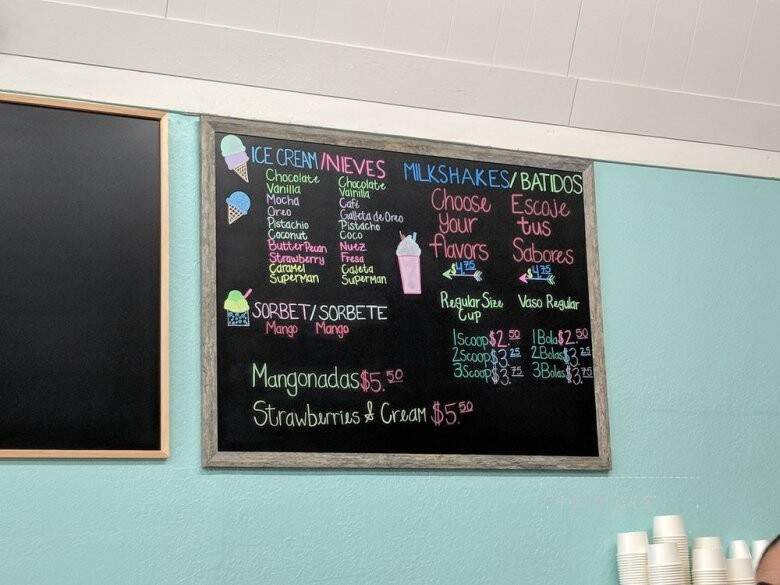 ICE CREAM/NIEVES
Chocolate
Vanilla
Mocha
Oreo
Pistachio
Coconut
Butter Pecan
Strawberry
Caramel
Superman
Chocolate
Vainilla
Café
Galleta de Oreo
Pistacho
Coco
Nuez
Fresa
Cajeta
Superman
SORBET/SORBETE
Mango Mango
MILKSHAKES/BATIDOS
Choose
your
flavors
$4.75
Escoje
tus
Sabores
$4.75
Regular Size
Cup
1 Scoop $2.50
2 Scoop $3.25
3 Scoop $3.75
Vaso Regular
1 Bola $2.50
2 Bolas $3.25
3 Bolas $3.75
Mangonadas $5.50
Strawberries & Cream $5.50